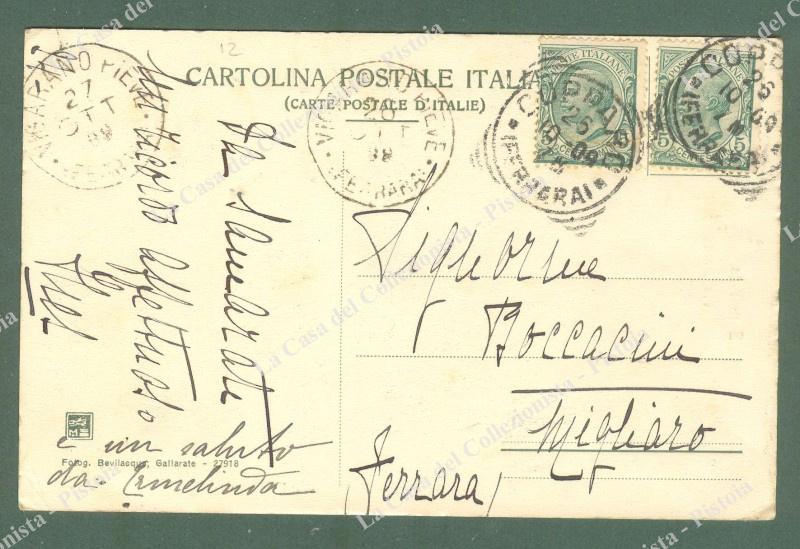 12
CARTOLINA POSTALE ITALIANA
(CARTE POSTALE D'ITALIE)
VIGARANO PIEVE
27
OTT
09
(FERRARA)
VIGARANO PIEVE
26
OTT
09
(FERRARA)
POSTE ITALIANE
COPPARO
26
10 09
(FERRARA)
POSTE ITALIANE
5
COPPARO
26
10 09
(FERRARA)
Da Samarate
un ricordo affettuoso
Signorine
Boccacini
Migliaro
Ferrara)
e un saluto
da Ermelinda
Fotog. Bevilacqua, Gallarate - 27918
La Casa del Collezionista - Pistoia